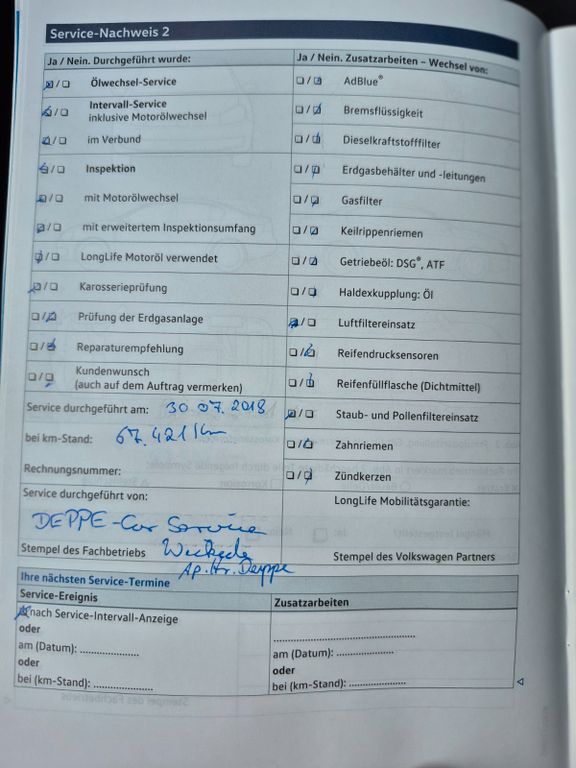 Service-Nachweis 2
Ja / Nein. Durchgeführt wurde:
☒ / ☐ Ölwechsel-Service
☒ / ☐ Intervall-Service
inklusive Motorölwechsel
☒ / ☐ im Verbund
☒ / ☐ Inspektion
☒ / ☐ mit Motorölwechsel
☒ / ☐ mit erweitertem Inspektionsumfang
☒ / ☐ LongLife Motoröl verwendet
☒ / ☐ Karosserieprüfung
☐ / ☒ Prüfung der Erdgasanlage
☐ / ☒ Reparaturempfehlung
☐ / ☒ Kundenwunsch
(auch auf dem Auftrag vermerken)
Service durchgeführt am: 30 07.2018
bei km-Stand: 67.421 km
Rechnungsnummer:
Service durchgeführt von:
DEPPE-Car Service
Wickede
Stempel des Fachbetriebs
Ap. Hr. Deppe
Ja / Nein. Zusatzarbeiten – Wechsel von:
☐ / ☒ AdBlue®
☐ / ☒ Bremsflüssigkeit
☐ / ☒ Dieselkraftstofffilter
☐ / ☒ Erdgasbehälter und -leitungen
☐ / ☒ Gasfilter
☐ / ☒ Keilrippenriemen
☐ / ☒ Getriebeöl: DSG®, ATF
☐ / ☒ Haldexkupplung: Öl
☒ / ☐ Luftfiltereinsatz
☐ / ☒ Reifendrucksensoren
☐ / ☒ Reifenfüllflasche (Dichtmittel)
☒ / ☐ Staub- und Pollenfiltereinsatz
☐ / ☒ Zahnriemen
☐ / ☒ Zündkerzen
LongLife Mobilitätsgarantie:
Stempel des Volkswagen Partners
Ihre nächsten Service-Termine
Service-Ereignis
☒ nach Service-Intervall-Anzeige
oder
am (Datum): ....................
oder
bei (km-Stand): ....................
Zusatzarbeiten
................................................
am (Datum): ....................
oder
bei (km-Stand): ....................